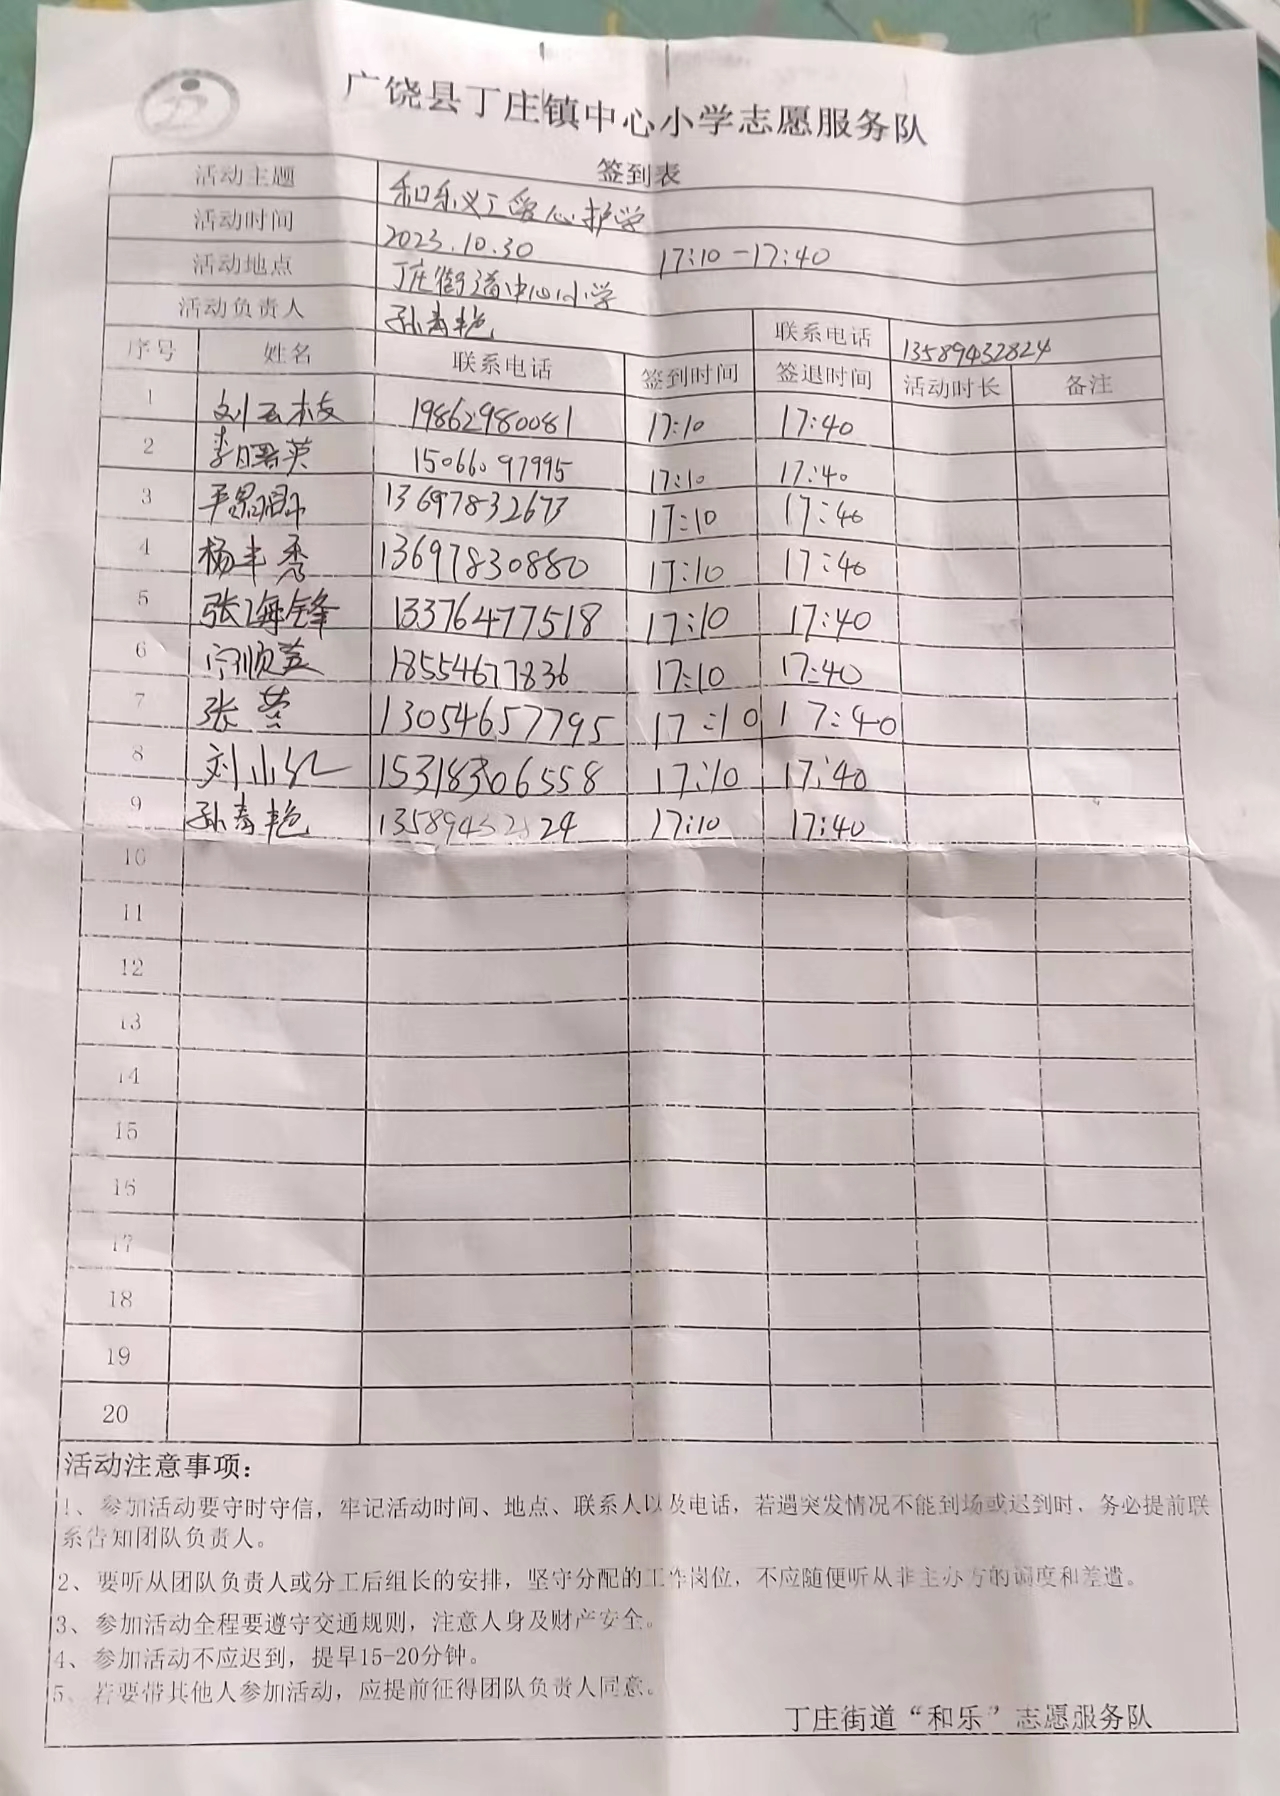 广饶县丁庄镇中心小学志愿服务队
签到表
活动主题 和乐义工爱心护学
活动时间 2023.10.30 17:10-17:40
活动地点 丁庄街道中心小学
活动负责人 孙春艳 联系电话 13589432824
序号 姓名 联系电话 签到时间 签退时间 活动时长 备注
1 刘玉枝 19862980081 17:10 17:40
2 李曙英 15066097995 17:10 17:40
3 13697832673 17:10 17:40
4 杨丰秀 13697830880 17:10 17:40
5 张海锋 13376477518 17:10 17:40
6 宁顺益 18554677836 17:10 17:40
7 张 13054657795 17:10 17:40
8 刘小红 15318306558 17:10 17:40
9 孙春艳 17:10 17:40
10
11
12
13
14
15
16
17
18
19
20
活动注意事项：
1、参加活动要守时守信，牢记活动时间、地点、联系人以及电话，若遇突发情况不能到场或迟到时，务必提前联
系告知团队负责人。
2、要听从团队负责人或分工后组长的安排，坚守分配的工作岗位，不应随便听从非主办方的调度和差遣。
3、参加活动全程要遵守交通规则，注意人身及财产安全。
4、参加活动不应迟到，提早15-20分钟。
5、若要带其他人参加活动，应提前征得团队负责人同意。
丁庄街道“和乐”志愿服务队